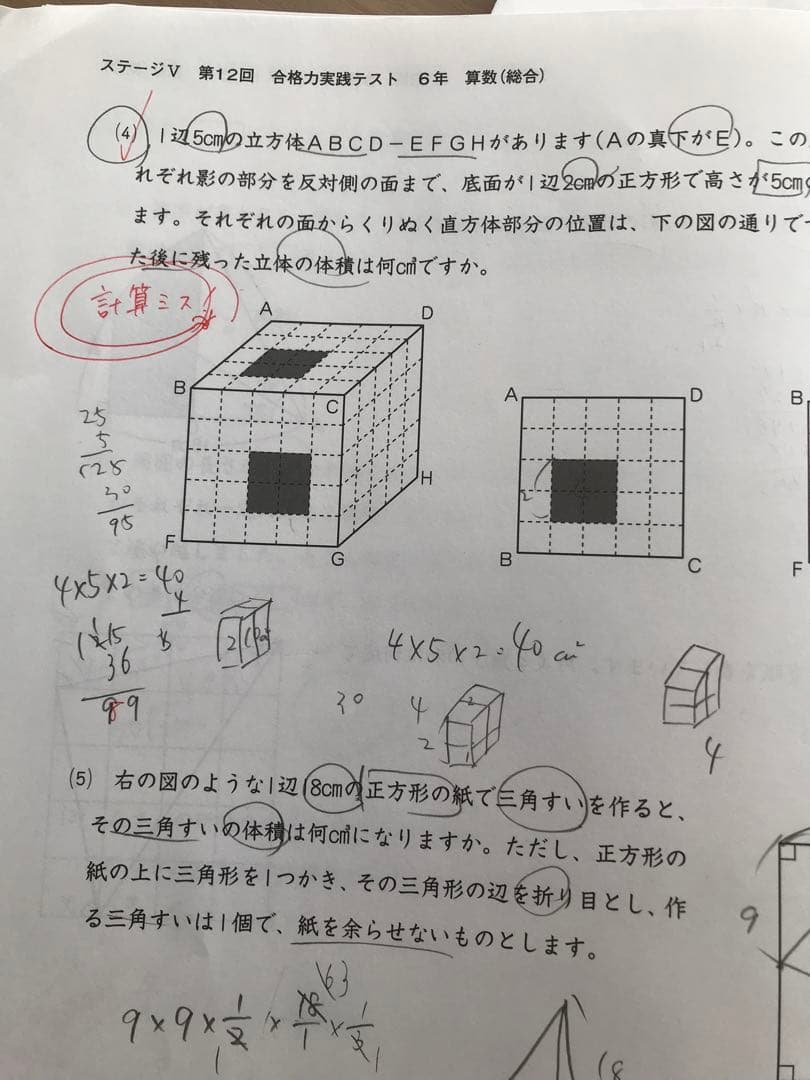 ステージⅤ 第12回 合格力実践テスト 6年 算数(総合)
(4) 1辺5cmの立方体ABCD-EFGHがあります(Aの真下がE)。この
れぞれ影の部分を反対側の面まで、底面が1辺2cmの正方形で高さが5cm
ます。それぞれの面からくりぬく直方体部分の位置は、下の図の通りで
た後に残った立体の体積は何cm³ですか。
計算ミス
A
D
B
C
H
F
G
A
D
B
C
B
F
25
5
125
30
95
4×5×2=40
4
36
89
2
4×5×2=40
30
4
2
2
4
(5) 右の図のような1辺18cmの正方形の紙で三角すいを作ると、
その三角すいの体積は何cm³になりますか。ただし、正方形の
紙の上に三角形を1つかき、その三角形の辺を折り目とし、作
る三角すいは1個で、紙を余らせないものとします。
9
9×9×1/2×18/1×1/3
18